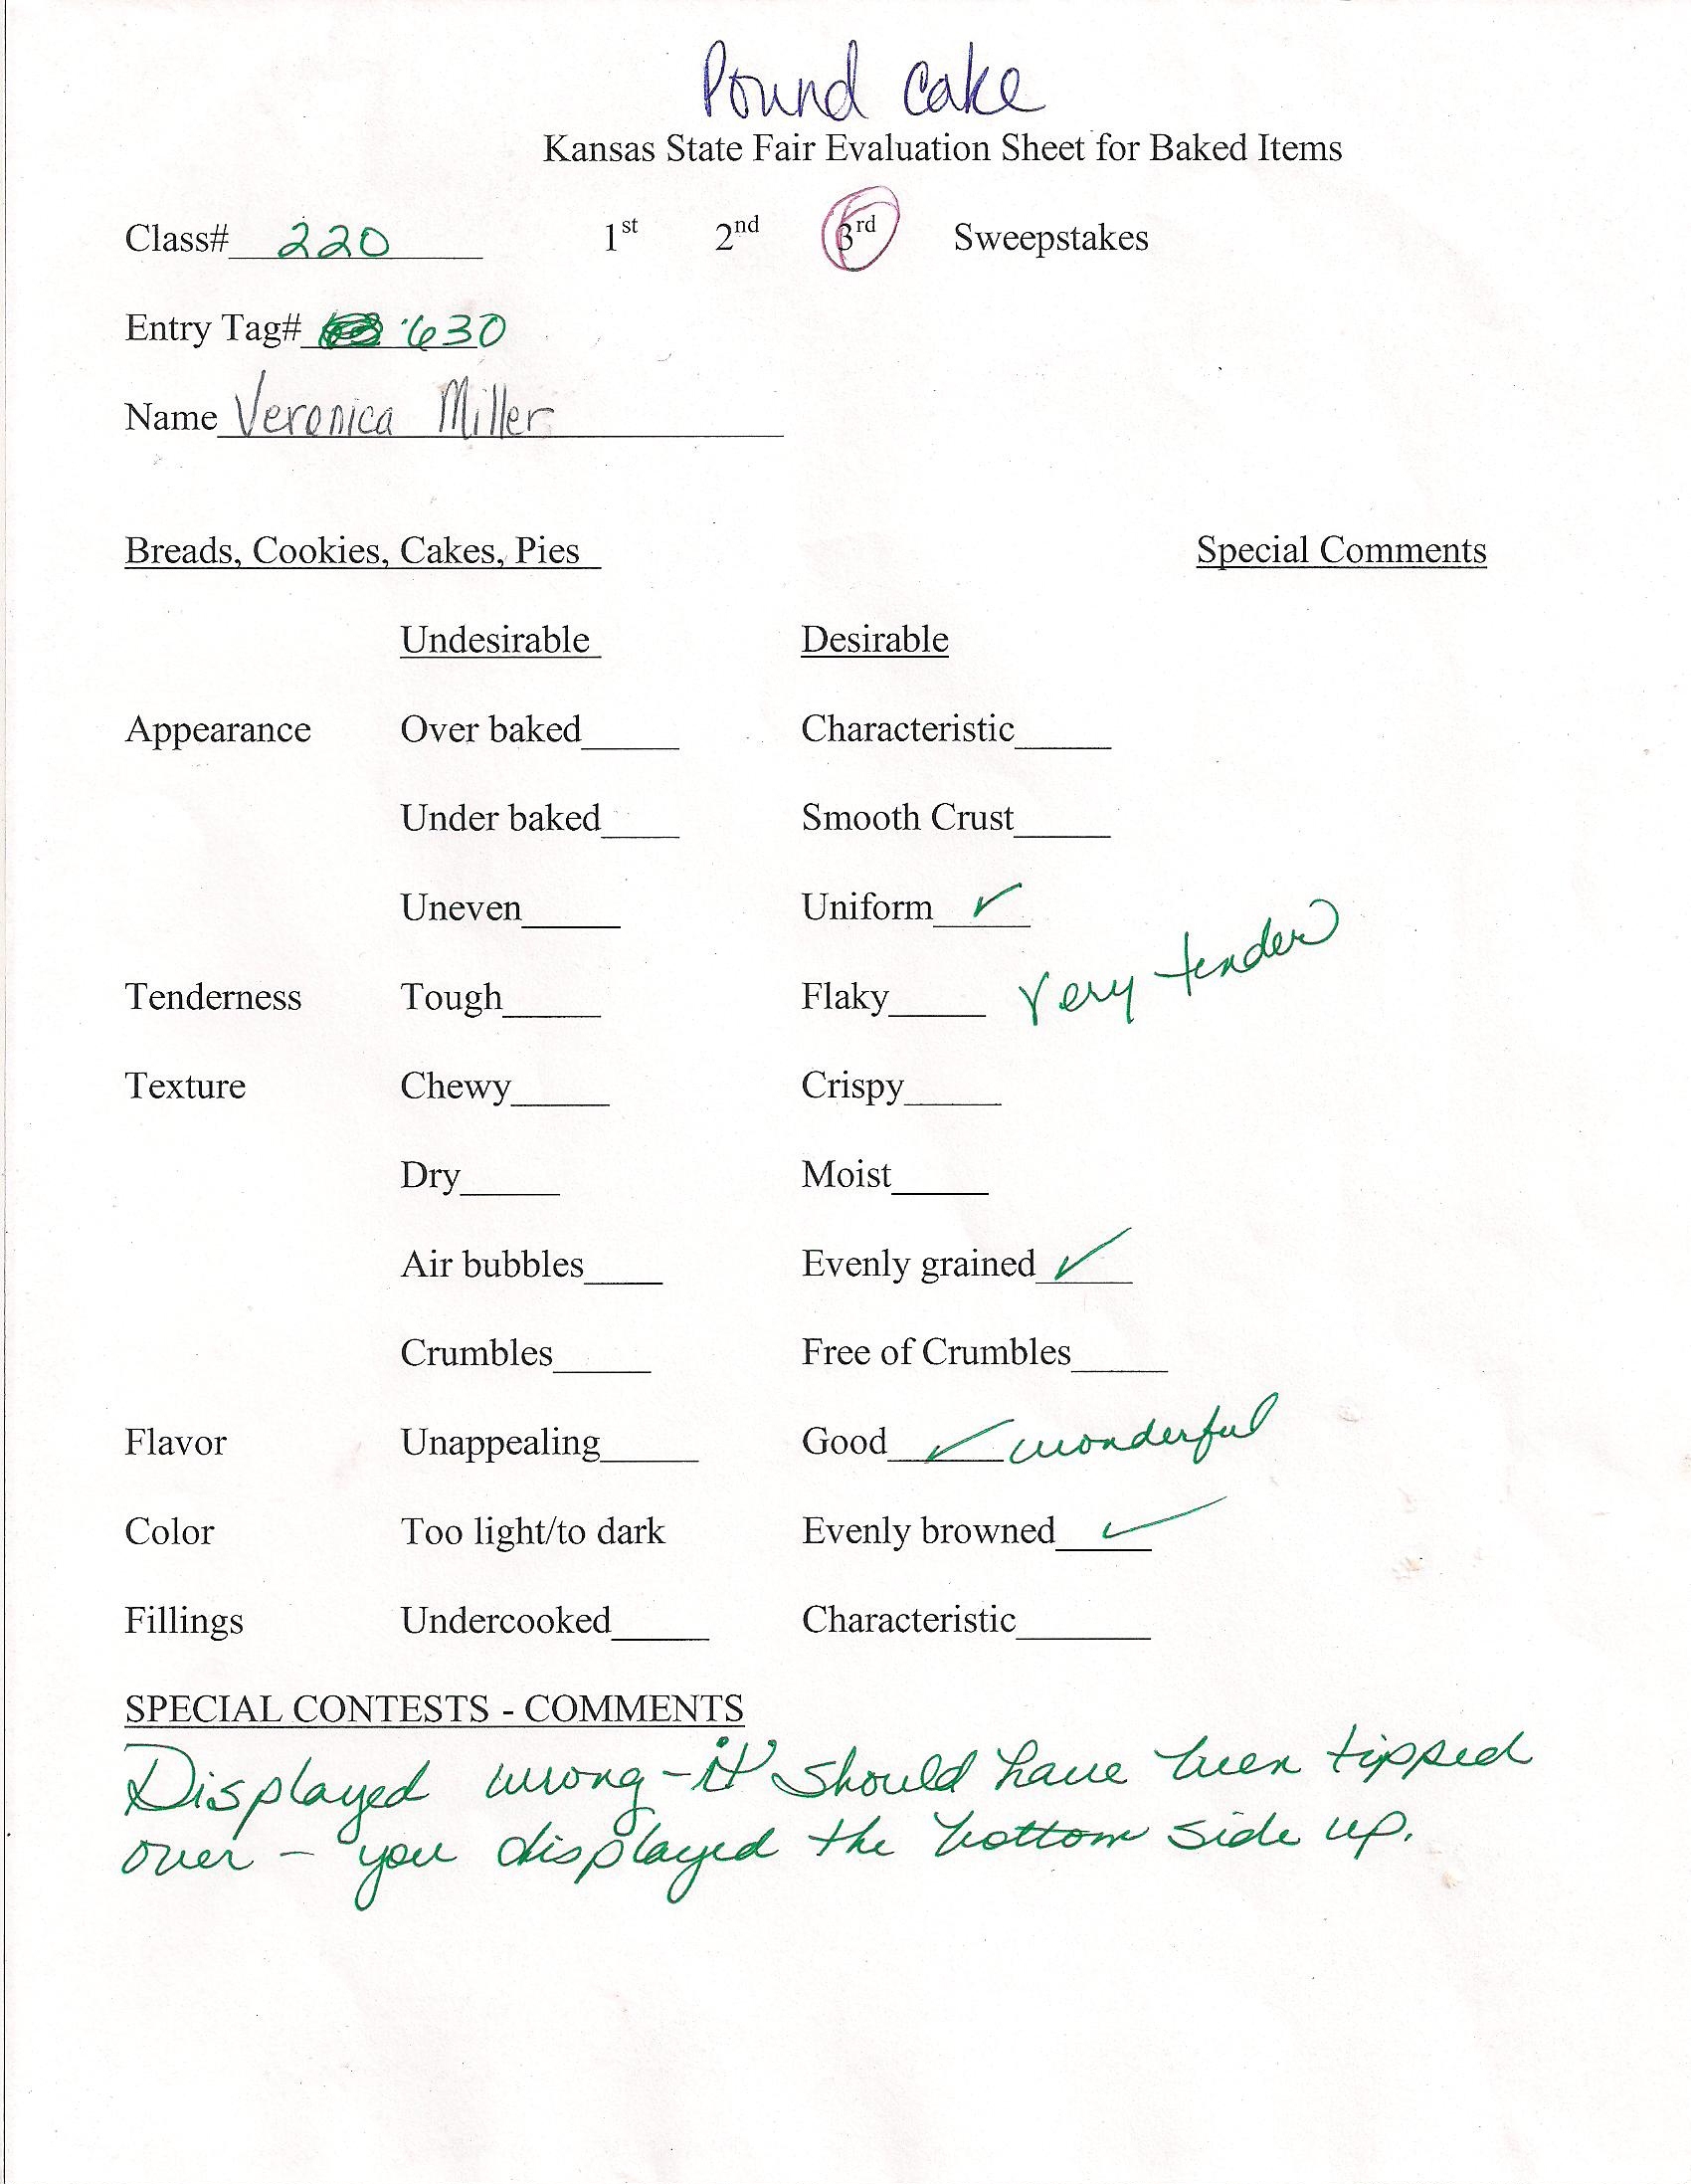 Pound cake
Kansas State Fair Evaluation Sheet for Baked Items
Class# 220 1st 2nd 3rd Sweepstakes
Entry Tag# 630
Name Veronica Miller
Breads, Cookies, Cakes, Pies Special Comments
Undesirable Desirable
Appearance Over baked____ Characteristic____
Under baked____ Smooth Crust____
Uneven____ Uniform ✓
Tenderness Tough____ Flaky____ Very tender
Texture Chewy____ Crispy____
Dry____ Moist____
Air bubbles____ Evenly grained ✓
Crumbles____ Free of Crumbles____
Flavor Unappealing____ Good ✓ wonderful
Color Too light/to dark Evenly browned ✓
Fillings Undercooked____ Characteristic____
SPECIAL CONTESTS - COMMENTS
Displayed wrong - it should have been tipped
over - you displayed the bottom side up.